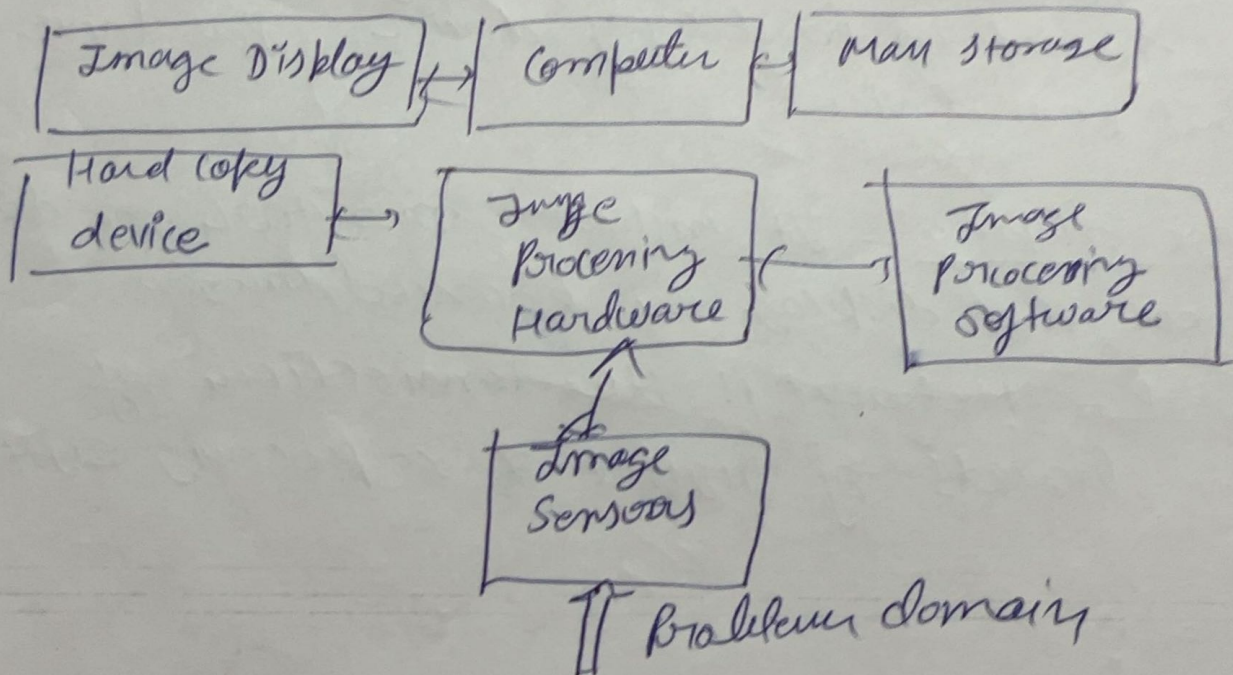 Image Display
Computer
Mass storage
Hard copy
device
Image
Processing
Hardware
Image
Processing
software
Image
Sensors
Problem domain